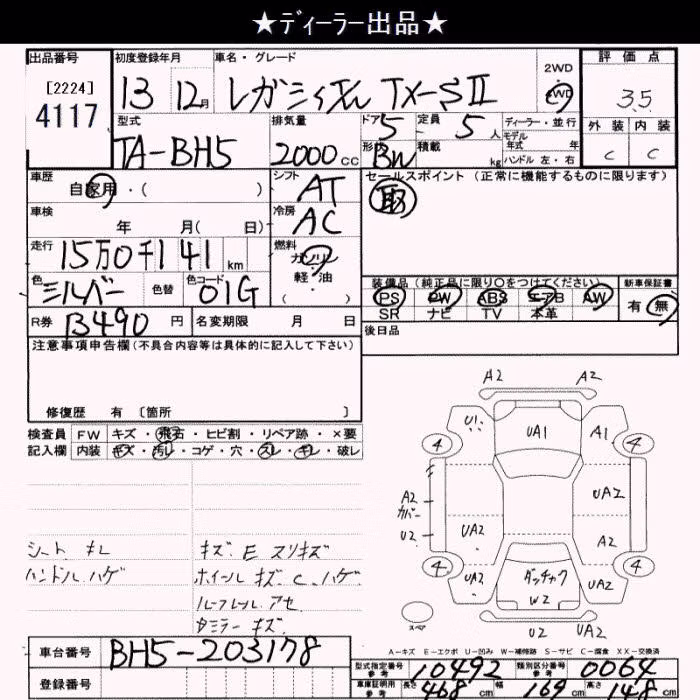 ★ディーラー出品★
出品番号
[2224]
4117
初度登録年月
13 12月
車名・グレード
レガシィ TX-SⅡ
2WD
4WD
評価点
3.5
外装 内装
C C
型式
TA-BH5
排気量
2000 cc
ドア 5
形状 BW
定員 5 人
積載 kg
ディーラー・並行
モデル年式 年
ハンドル 左・右
車歴
自家用・( )
シフト AT
車検
年 月( 日)
冷房 AC
走行
15万0千141 km
燃料
ガソリン
軽・油
色 シルバー
色替
色コード 01G
R券 13490 円
名変期限 月 日
セールスポイント (正常に機能するものに限ります)
取
装備品 (純正品に限り○をつけてください)
PS PW ABS エアB AW
SR ナビ TV 本革
新車保証書
有・無
後日品
注意事項申告欄(不具合内容等は具体的に記入して下さい)
修復歴 有 〔箇所 〕
検査員記入欄
FW キズ・飛石・ヒビ割・リペア跡・×要
内装 キズ・汚レ・コゲ・穴・スレ・キレ・破レ
シート キレ
ハンドル ハゲ
キズ E スリキズ
ホイール キズ C ハゲ
ルーフレール アセ
ミラー キズ
A2 A2
U1 UA1 A1
4 4
A2 カバー
UA2
U2
UA2
A2
4 4
UA2 W2 UA2
U2 UA2
スペア
A-キズ E-エクボ U-凹み W-補修跡 S-サビ C-腐食 XX-交換済
車台番号 BH5-203178
登録番号
型式指定番号 参考 10492
類別区分番号 参考 0064
車庫証明用 参考 長さ 468 cm 幅 169 cm 高さ 148 cm